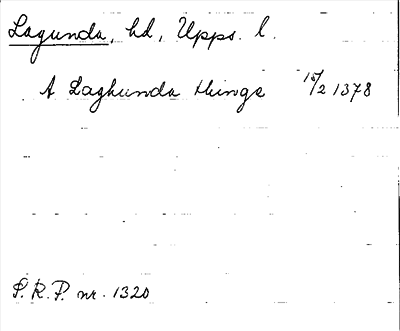 Lagunda, hd, Upps. l.
A Laghunda thinge 15/2 1378
S. R. P. nr. 1320